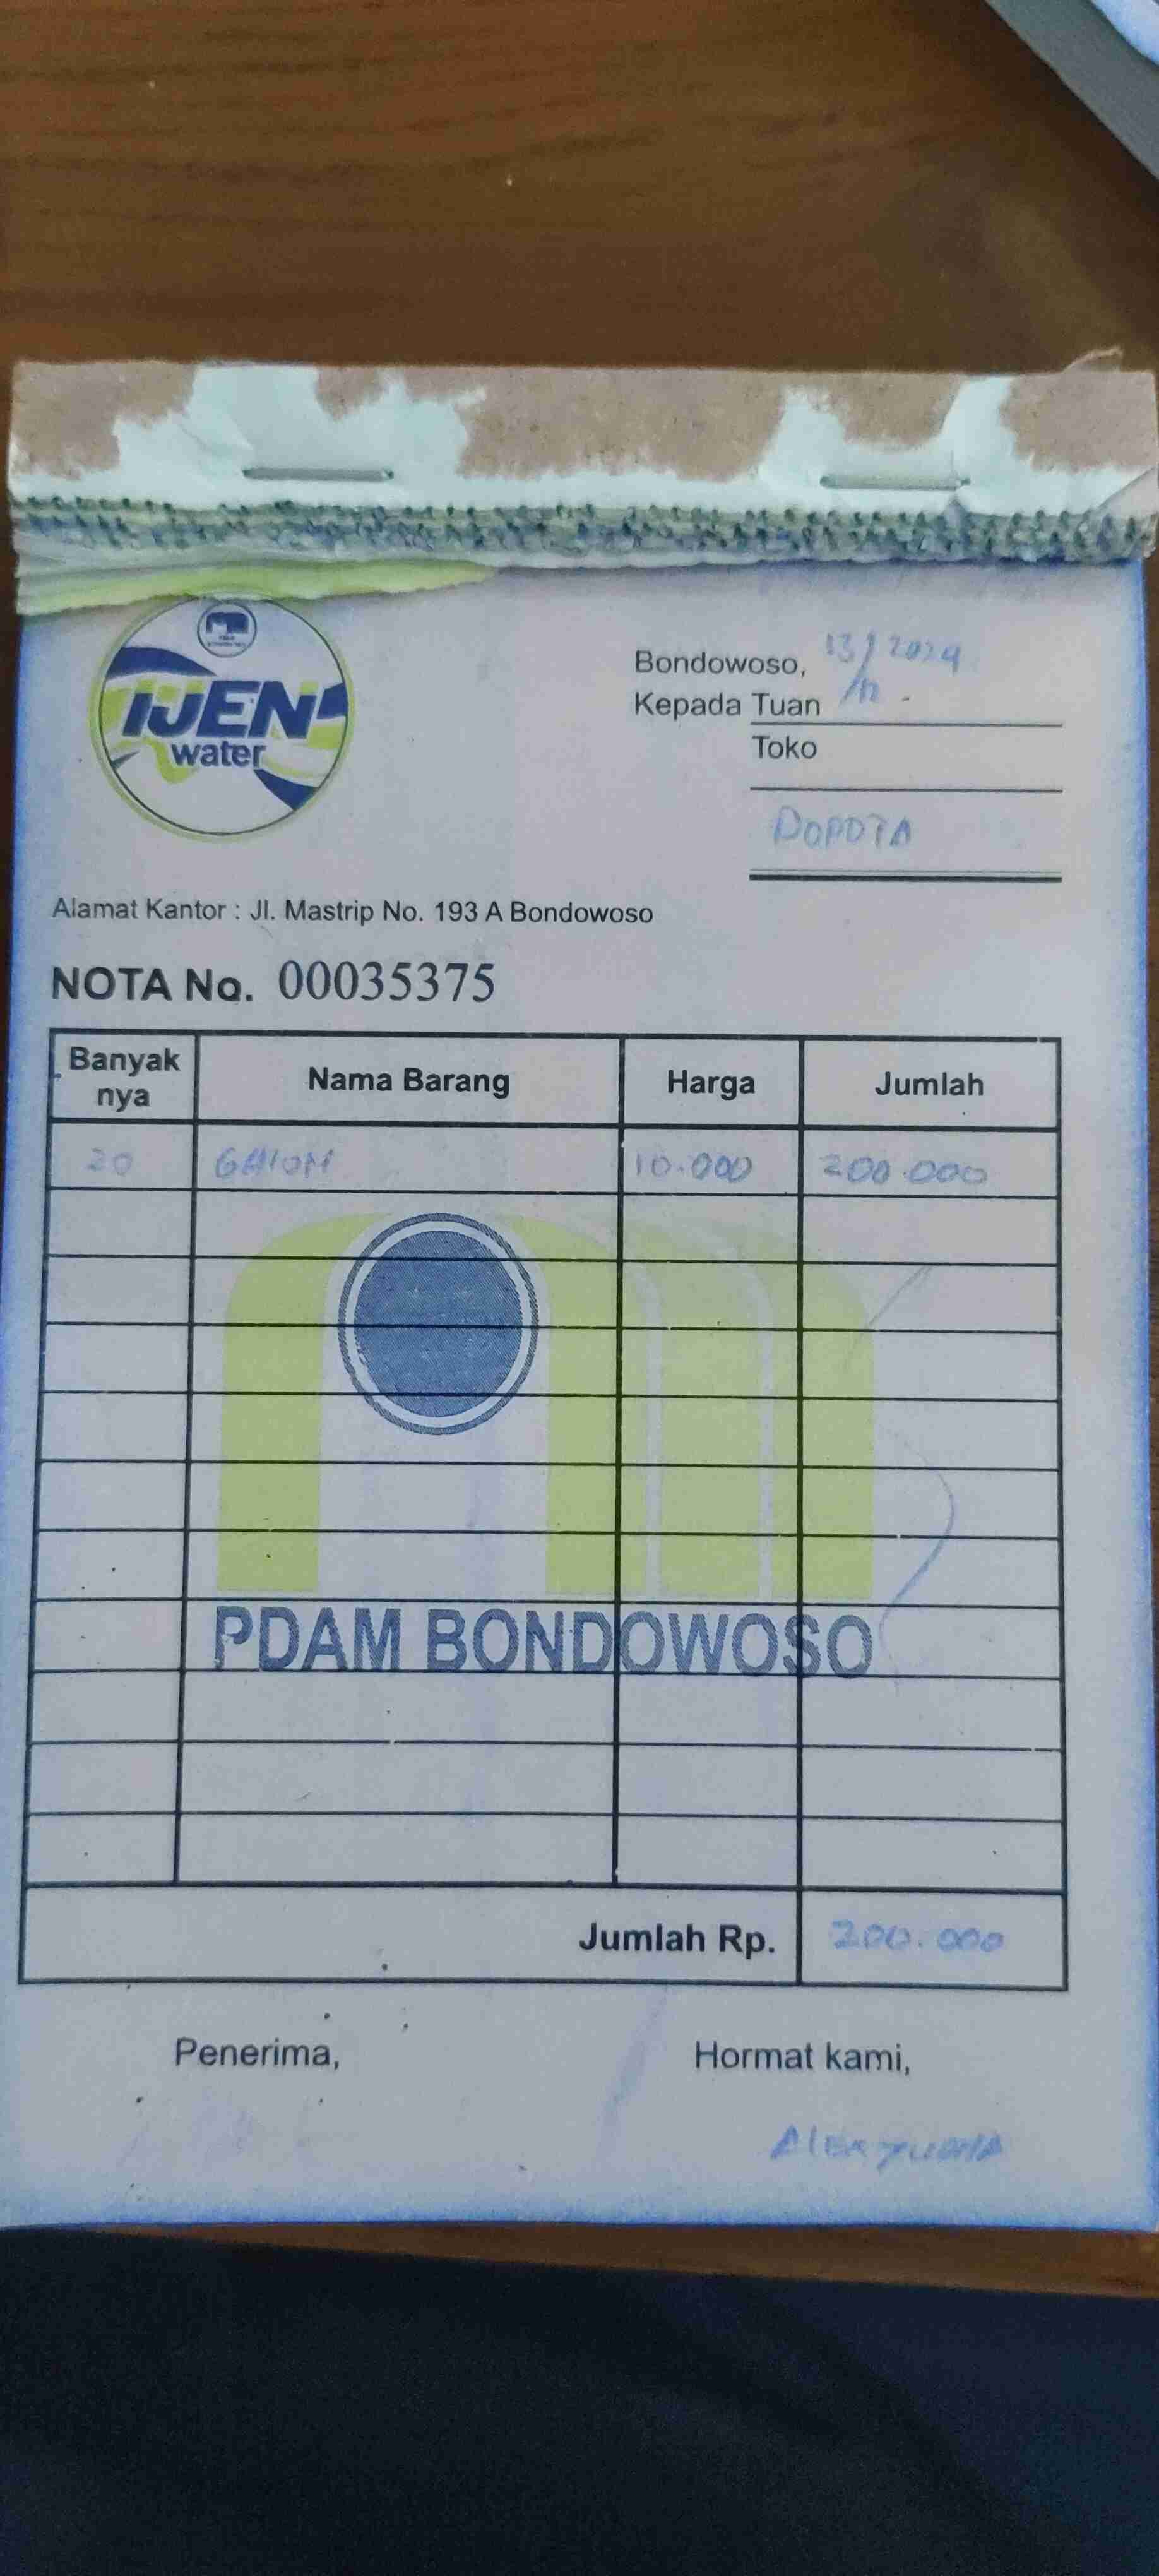 IJEN
water
Bondowoso, 13/12 2024
Kepada Tuan
Toko
POPOTA
Alamat Kantor : Jl. Mastrip No. 193 A Bondowoso
NOTA No. 00035375
Banyak nya Nama Barang Harga Jumlah
20 GALON 10.000 200.000
PDAM BONDOWOSO
Jumlah Rp. 200.000
Penerima, Hormat kami,